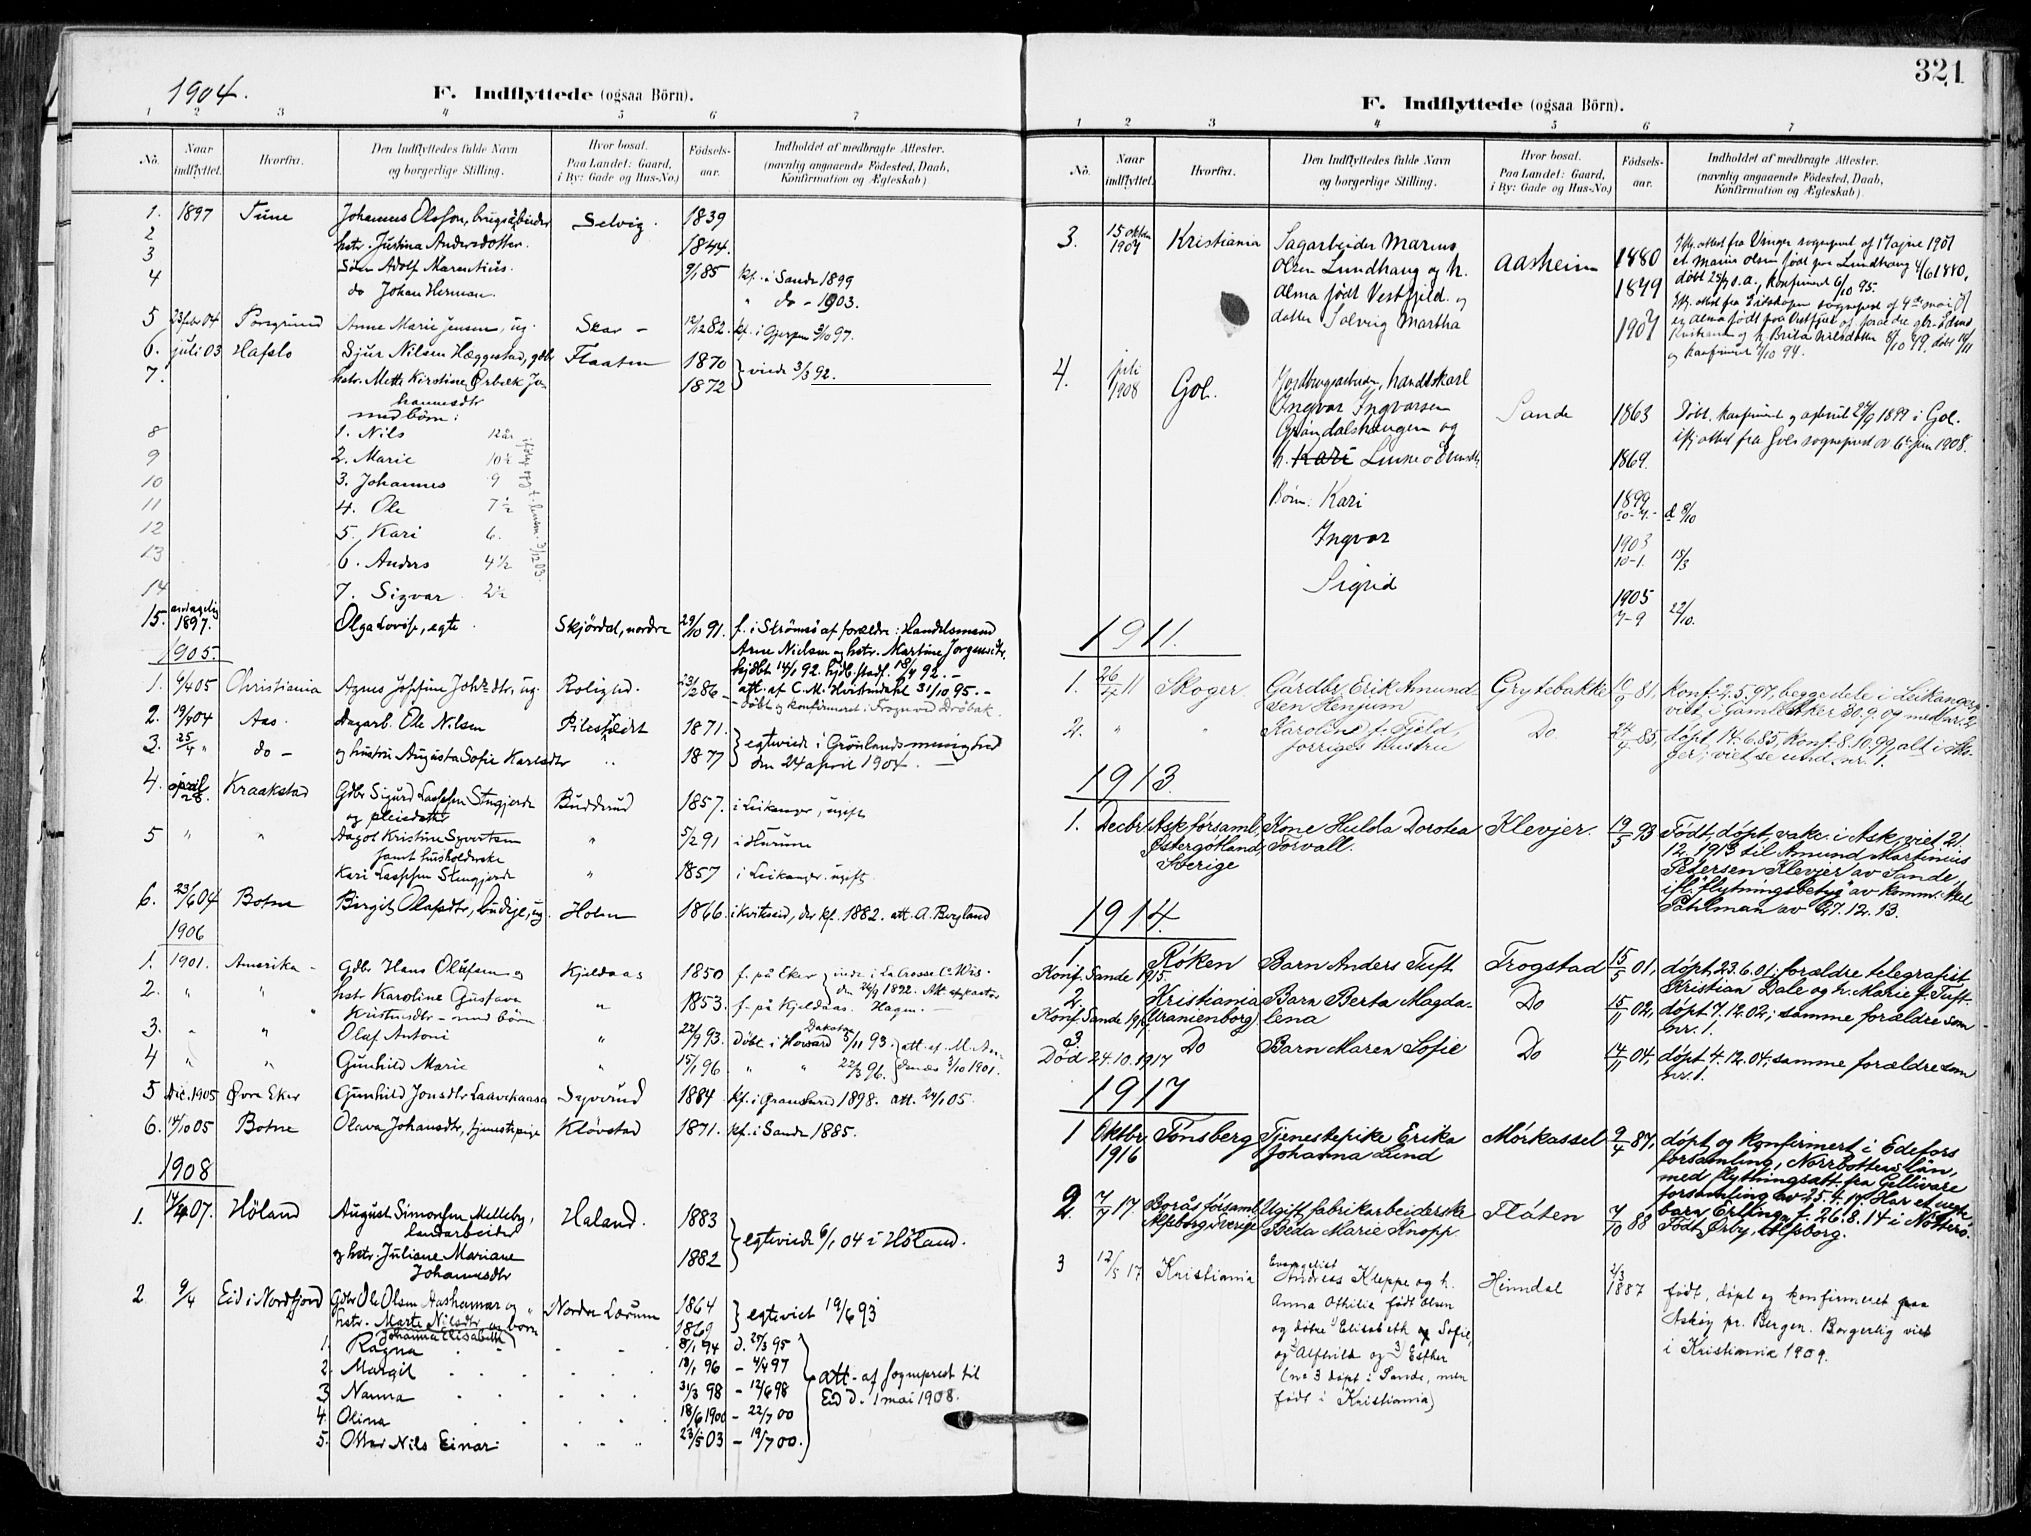 1904.
F. Indflyttede (ogsaa Börn).
1 2 3 4 5 6 7
No. Naar indflyttet. Hvorfra. Den Indflyttedes fulde Navn og borgerlige Stilling. Hvor bosat. Paa Landet: Gaard, i By: Gade og Hus-No.) Födsels-aar. Indholdet af medbragte Attester. (navnlig angaaende Födested, Daab, Konfirmation og Ægteskab)
1. 1897 Tune Johannes Olsson, brugsarbeider Selvig. 1839
2 hstr. Justina Andersdotter. 1844.
3 Søn Adolf Marentius. 9/1 85 kf. i Sande 1899
4 do Johan Herman. " do - 1903.
5 23 febr 04 Porsgrund Anne Marie Jensen, ug. Skar - 12/2 82. kf. i Gjerpen 3/10 97.
6. juli 03 Hafslo Sjur Nilsen Hæggestad, gdbr Flaaten 1870 viede 3/3 92.
7. hstr. Mette Kirstine Ørbæk Jo- 1872
hannesdtr
med börn:
8 1. Nils 12 år
9 2. Marie 10½
10 3. Johannes 9
11 4. Ole 7½
12 5. Kari 6.
13 6. Anders 4½
14 7. Sigvar 2½
15. 1897. Olga Lovise, egte Skjørdal, nordre 29/10 91. f. i Strømsø af forældre: Handelsmand
Arne Nielsen og hstr. Martine Jørgensdtr.
hjdbt 14/1 92. hjdb. stadf. 18/4 92. -
1905.
1. 6/4 05 Christiania Agnes Josefine Johsdtr, ug. Rolighed. 23/2 86 - att. af C. M. Hvistendahl 31/10 95. -
- Døbt og konfirmeret i Frogn ved Drøbak.
2. 19/4 04 Aas. Dagarb. Ole Nilsen Pilestrædet 1871. egteviede i Grönlands menighed
3. 25/4 " do - og hustru Augusta Sofie Karlsdtr " 1877 den 24 april 1904. -
4. april 28. Kraakstad Gdbr Sigurd Lassesen Stengjerde Budderud 1857. i Leikanger, ugift
og pleiedatter
5 " " Aagot Kristine Syvertsen " 5/2 91 i Hurum
samt husholderske
Kari Lassesen Stengjerde " 1857 i Leikanger. ugift.
6. 23/6 04 Botne Birgit Olafsdtr, budeje, ug. Holm 1866. i Kvitseid, der kf. 1882. att. A. Bergland
1906
1. 1901. Amerika - Gdbr Hans Olufsen og Kjeldaas 1850 f. på Eker viede i La Crosse Co Wis.
2. " " hstr Karoline Gustava " 1853. f. på Kjeldaas. Hagen. -
Kristensdtr - med börn.
3. " " Olaf Antoni " 22/9 93. Døbt i Howard Dakota 5/11 93.
4 " " Gunhild Marie " 15/1 96. " " 22/3 96. 3/10 1901.
5 Dec. 1905 Øvre Eker Gunhild Jonsdtr Laavekaasa Syverud 1884 kf. i Gransherred 1898. att. 24/1 05.
6. 14/10 05 Botne Olava Johansdtr, tjenestepige Kløvstad 1871. kf. i Sande 1885.
1908
1. 14/4 07. Höland August Simonsen Melleby, Haland. 1883 egteviede 6/1 04 i Höland.
landarbeider
og hstr. Juliane Mariane 1882
Johannesdtr
2. 9/4 Eid i Nordfjord Gdbr Ole Olsen Aashamar og Nordre Lærum 1864 egteviet 19/6 93
hstr. Marte Nilsdtr og börn 1869
(Johanna Elisabeth)
1. Ragna 8/1 94 d. 25/3 95
2. Margit 18/1 96 - 4/4 97 att. af sogneprest til
3 Nanna 31/3 98 - 12/6 98 Eid d. 1 mai 1908.
4. Olina 18/6 1900 - 22/7 00
5. Otter Nils Einar: 23/5 03 - 19/7 00.
321
F. Indflyttede (ogsaa Börn).
1 2 3 4 5 6 7
No. Naar indflyttet. Hvorfra. Den Indflyttedes fulde Navn og borgerlige Stilling. Hvor bosat. Paa Landet: Gaard, i By: Gade og Hus-No.) Födsels-aar. Indholdet af medbragte Attester. (navnlig angaaende Födested, Daab, Konfirmation og Ægteskab)
3. 15 oktbr 1907 Kristiania Sagarbeider Marius Aasheim 1880
Olsen Lundhaug og h. døbt 25/7 s. a., konfirmeret 6/10 95.
Alma født Vestfjeld og 1879
datter Solveig Martha 1907
og h. Brita Nilsdatter
og konfirmert 7/10 94.
4. juli 1908 Gol. Jordbrugsarbeider, handelskarl
Ingvar Ingvarsen Sande 1863 Döbt, konfirmeret og egteviet 27/9 1899 i Gol.
Gröndalshaugen og ifg. attest fra Gols sogneprest av 6te juni 1908.
h. Kari 1869.
Børn: Kari 1899 10-7- d 8/10
Ingvar 1903 10-1. 15/3
Sigrid 1905 7-9 22/10.
1911.
1. 26/4 11 Skoger Gårdbr. Erik Amund- Grytebakke 10/9 81. konf. 2.5.97, begge dele i Leikanger;
sen Henjum viet i Gamle Aker 30.9.09 med nr. 2.
2. " " Karoline f. Fjeld, Do. 24/4 85. døpt 14.6.85, konf. 8.10.99, alt i Sko-
forriges hustru ger; viet se und. nr. 1.
1913.
1. Decbr. Ask församl., Kone Hulda Dorotea Klevjer. 19/5 93 Född, döpt, vakc. i Ask, viet 21.
Östergötland, Torvall. 12. 1913 til Amund Martinius
Sverige Petersen Klevjer av Sande,
ifl. "flytningsbetyg" av komm. Axel
Pahlman av 27.12.13.
1914.
1 Røken Barn Anders Tuft Trogstad 15/5 01, døpt 23.6.01; forældre telegrafist
Konf. Sande 1915 Kristian Dale og h. Marie f. Tuft.
2. Kristiania Barn Berta Magda- Do 15/11 02, døpt 7.12.02; samme forældre som
Konf. Sande (Uranienborg) lena nr. 1.
3. Do Barn Maren Sofie Do 14/11 04, døpt 4.12.04; samme forældre som
Død 24.10.1917 nr. 1.
1917
1 Oktbr. 1916 Tønsberg Tjenestepike Erika Mörkassel 9/4 87, døpt og konfirmert i Edefors
Johanna Lund församling, Norrbottens län,
med flytningsatt. fra Gellivare
forsamling av 25.4.17. Har et uegte
2 7/7 17 Borås församl. Ugift fabrikarbeiderske Flåten 7/10 88 barn Erling, f. 26.8.14 i Nøtterø.
Elfsborg Sverige Beda Marie Knopp. Född Örby, Elfsborg.
3 12/5 17 Kristiania Evangelist Heimdal 2/3 1887
Andreas Kleppe og h. født, døpt og konfirmeret paa
Anna Othilie født Olsen Askøy pr. Bergen. Borgerlig viet
og døtre Elisabeth og Sofie, i Kristiania 1909.
og Alfhild og 3) Esther
(no 3 døpt i Sande, men
født i Kristiania)